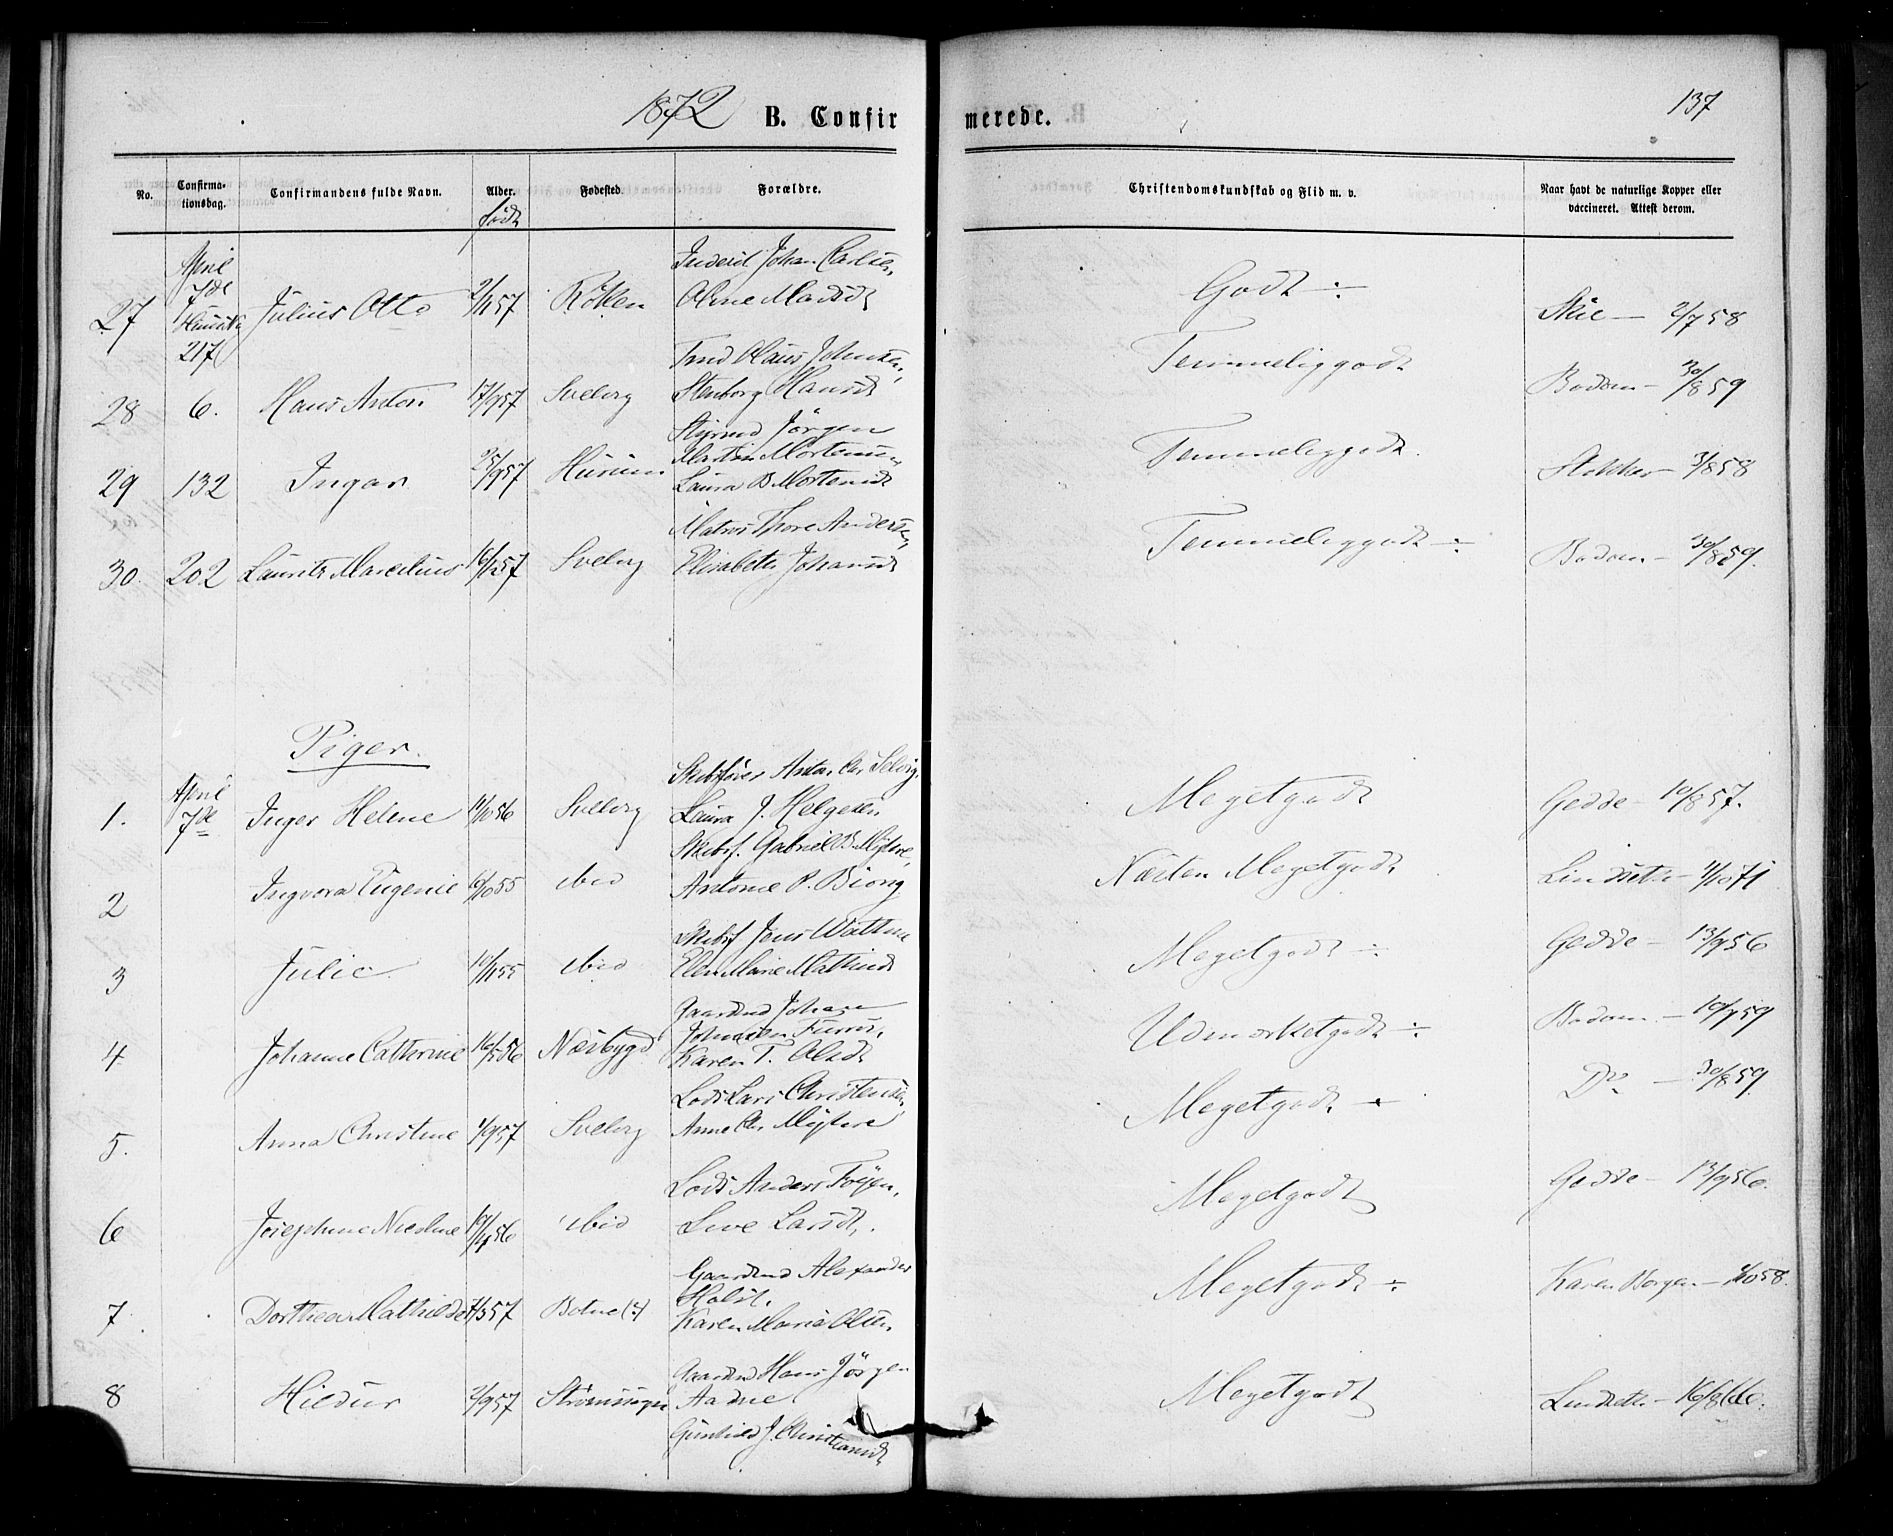 1872 B. Confirmerede. 137
No. Confirmationsdag. Confirmandens fulde Navn. Alder. født Fødested. Forældre. Christendomskundskab og Flid m. v. Naar havt de naturlige Kopper eller vaccineret. Attest derom.
April
7de
217
27 Julius Otto 2/1157 Röken Johan Carlsen, Godt ÷ 2/758
28 6. Hans Anton 17/957 Svelvig Olaus Johnsen, Stenborg Hansdt Temmeliggodt Bodom - 30/859
29 132 Ingar 25/957 Hurum Styrmd Jörgen
Martin Mortensen
Laura B Mortensdt Temmeliggodt. Stokker - 3/858
30. 202 Laurits Marcelius 16/1257 Svelvig Matros Thore Andersen,
Elisabeth Johansdt Temmeliggodt ÷ Bodom - 30/859.
Piger.
1. April
7de Inger Helene Svelvig Skibsfører Anton Chr Selvig,
Laura J. Helgesen Megetgodt Gedde - 10/857.
2 Ingvora Eugenie 6/1055 ibid Skibsf. Gabriel B.
Antonie P. Biong Næsten Megetgodt Lindseth - 4/1071
3 Julie 10/1155 ibid Skibsf Jens
Elen Marie Megetgodt ÷ Gedde - 13/956
4 Johanne Cathrine 16/556 Næsbygd Gaardmd Johan
Johnsen Furus,
Karen T. Olsdt Udmærketgodt ÷ Bodom -
5. Anna Christine 1/957 Svelvig Lods Lars Christensen,
Anne Chr Megetgodt ÷ Do - 30/859
6 Josephine Nicoline ibid Lods Anders
Live Larsdt. Megetgodt Gedde - 13/956.
7 Dorthea Mathilde Botne (?) Gaardmd Alexander
Holst,
Karen Maria Olsen Megetgodt ÷ Karen Borgen -
8 Hildur 2/957 Strømssogn Gaardmd Hans Jörgen
Aadne
Gunhild J. Christiansdt Megetgodt Lindseth -